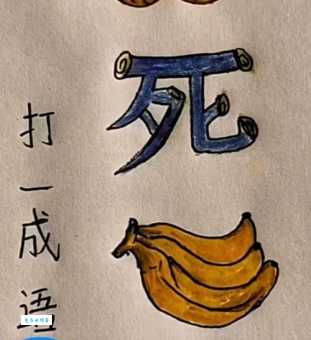 打一成语
死